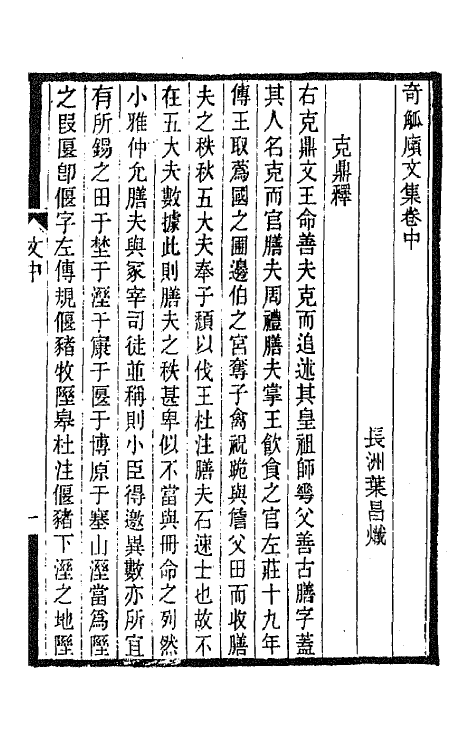 奇觚廎文集卷中
長洲葉昌熾
克鼎釋
右克鼎文王命善夫克而追述其皇祖師華父善古膳字蓋
其人名克而官膳夫周禮膳夫掌王飲食之官左莊十九年
傳王取蔿國之圃邊伯之宮奪子禽祝跪與詹父田而收膳
夫之秩秋五大夫奉子頹以伐王杜注膳夫石速士也故不
在五大夫數據此則膳夫之秩甚卑似不當與冊命之列然
小雅仲允膳夫與冢宰司徒並稱則小臣得邀異數亦所宜
有所錫之田于埜于溼于康于匽于博原于寒山溼當爲隰
之叚匽卽偃字左傳規偃豬牧隰皋杜注偃豬下溼之地隰
文中
一